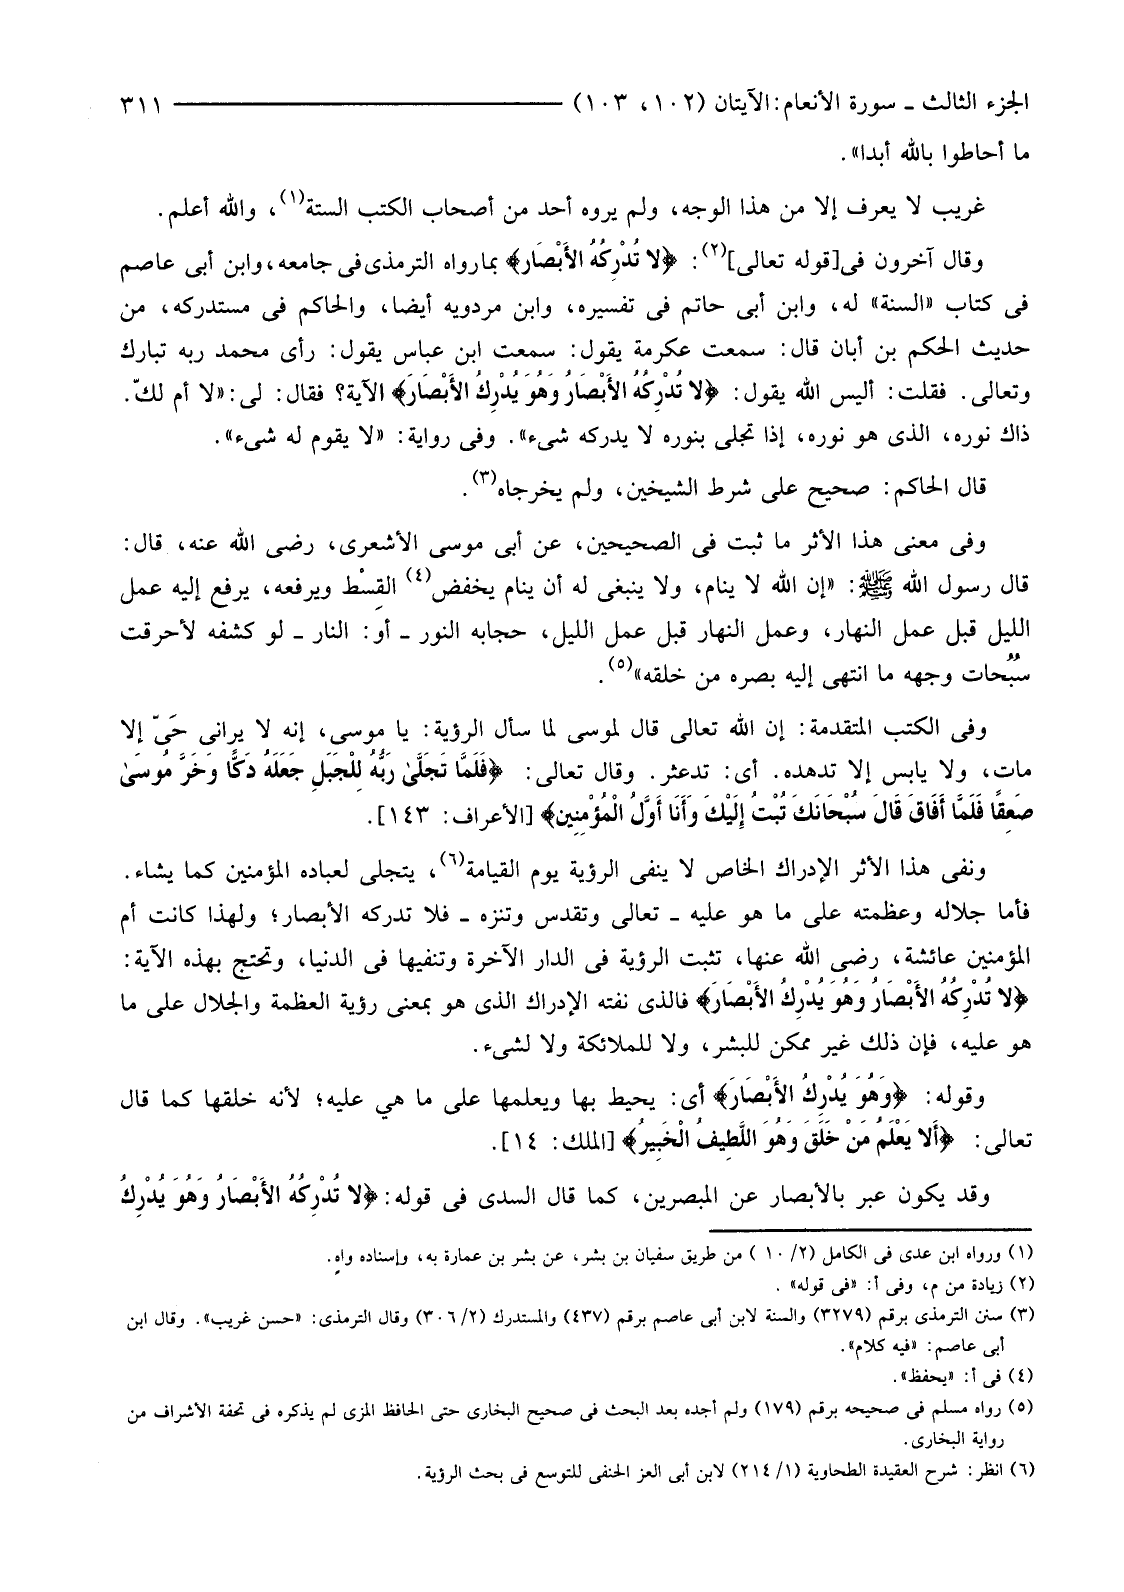 الجزء الثالث ـ سورة الأنعام: الآيتان (١٠٢، ١٠٣) ٣١١
ما أحاطوا بالله أبدا».
غريب لا يعرف إلا من هذا الوجه، ولم يروه أحد من أصحاب الكتب الستة(١)، والله أعلم.
وقال آخرون فى[قوله تعالى](٢): ﴿لا تُدْرِكُهُ الأَبْصَار﴾ بمارواه الترمذى فى جامعه،وابن أبى عاصم
فى كتاب «السنة» له، وابن أبى حاتم فى تفسيره، وابن مردويه أيضا، والحاكم فى مستدركه، من
حديث الحكم بن أبان قال: سمعت عكرمة يقول: سمعت ابن عباس يقول: رأى محمد ربه تبارك
وتعالى. فقلت: أليس الله يقول: ﴿لا تُدْرِكُهُ الأَبْصَارُ وَهُوَ يُدْرِكُ الأَبْصَارَ﴾ الآية؟ فقال: لى:«لا أم لك.
ذاك نوره، الذى هو نوره، إذا تجلى بنوره لا يدركه شىء». وفى رواية: «لا يقوم له شىء».
قال الحاكم: صحيح على شرط الشيخين، ولم يخرجاه(٣).
وفى معنى هذا الأثر ما ثبت فى الصحيحين، عن أبى موسى الأشعرى، رضى الله عنه، قال:
قال رسول الله ﷺ: «إن الله لا ينام، ولا ينبغى له أن ينام يخفض(٤) القِسْط ويرفعه، يرفع إليه عمل
الليل قبل عمل النهار، وعمل النهار قبل عمل الليل، حجابه النور ـ أو: النار ـ لو كشفه لأحرقت
سُبُحات وجهه ما انتهى إليه بصره من خلقه»(٥).
وفى الكتب المتقدمة: إن الله تعالى قال لموسى لما سأل الرؤية: يا موسى، إنه لا يرانى حَىّ إلا
مات، ولا يابس إلا تدهده. أى: تدعثر. وقال تعالى: ﴿فَلَمَّا تَجَلَّىٰ رَبُّهُ لِلْجَبَلِ جَعَلَهُ دَكًّا وَخَرَّ مُوسَىٰ
صَعِقًا فَلَمَّا أَفَاقَ قَالَ سُبْحَانَكَ تُبْتُ إِلَيْكَ وَأَنَا أَوَّلُ الْمُؤْمِنِين﴾ [الأعراف: ١٤٣].
ونفى هذا الأثر الإدراك الخاص لا ينفى الرؤية يوم القيامة(٦)، يتجلى لعباده المؤمنين كما يشاء.
فأما جلاله وعظمته على ما هو عليه ـ تعالى وتقدس وتنزه ـ فلا تدركه الأبصار؛ ولهذا كانت أم
المؤمنين عائشة، رضى الله عنها، تثبت الرؤية فى الدار الآخرة وتنفيها فى الدنيا، وتحتج بهذه الآية:
﴿لا تُدْرِكُهُ الأَبْصَارُ وَهُوَ يُدْرِكُ الأَبْصَارَ﴾ فالذى نفته الإدراك الذى هو بمعنى رؤية العظمة والجلال على ما
هو عليه، فإن ذلك غير ممكن للبشر، ولا للملائكة ولا لشىء.
وقوله: ﴿وَهُوَ يُدْرِكُ الأَبْصَارَ﴾ أى: يحيط بها ويعلمها على ما هي عليه؛ لأنه خلقها كما قال
تعالى: ﴿أَلا يَعْلَمُ مَنْ خَلَقَ وَهُوَ اللَّطِيفُ الْخَبِيرُ﴾ [الملك: ١٤].
وقد يكون عبر بالأبصار عن المبصرين، كما قال السدى فى قوله:﴿لا تُدْرِكُهُ الأَبْصَارُ وَهُوَ يُدْرِكُ
(١) ورواه ابن عدى فى الكامل (٢/ ١٠ ) من طريق سفيان بن بشر، عن بشر بن عمارة به، وإسناده واهٍ.
(٢) زيادة من م، وفى أ: «فى قوله» .
(٣) سنن الترمذى برقم (٣٢٧٩) والسنة لابن أبى عاصم برقم (٤٣٧) والمستدرك (٢/ ٣٠٦) وقال الترمذى: «حسن غريب». وقال ابن
أبى عاصم: «فيه كلام».
(٤) فى أ: «يحفظ».
(٥) رواه مسلم فى صحيحه برقم (١٧٩) ولم أجده بعد البحث فى صحيح البخارى حتى الحافظ المزى لم يذكره فى تحفة الأشراف من
رواية البخارى.
(٦) انظر: شرح العقيدة الطحاوية (١/ ٢١٤) لابن أبى العز الحنفى للتوسع فى بحث الرؤية.